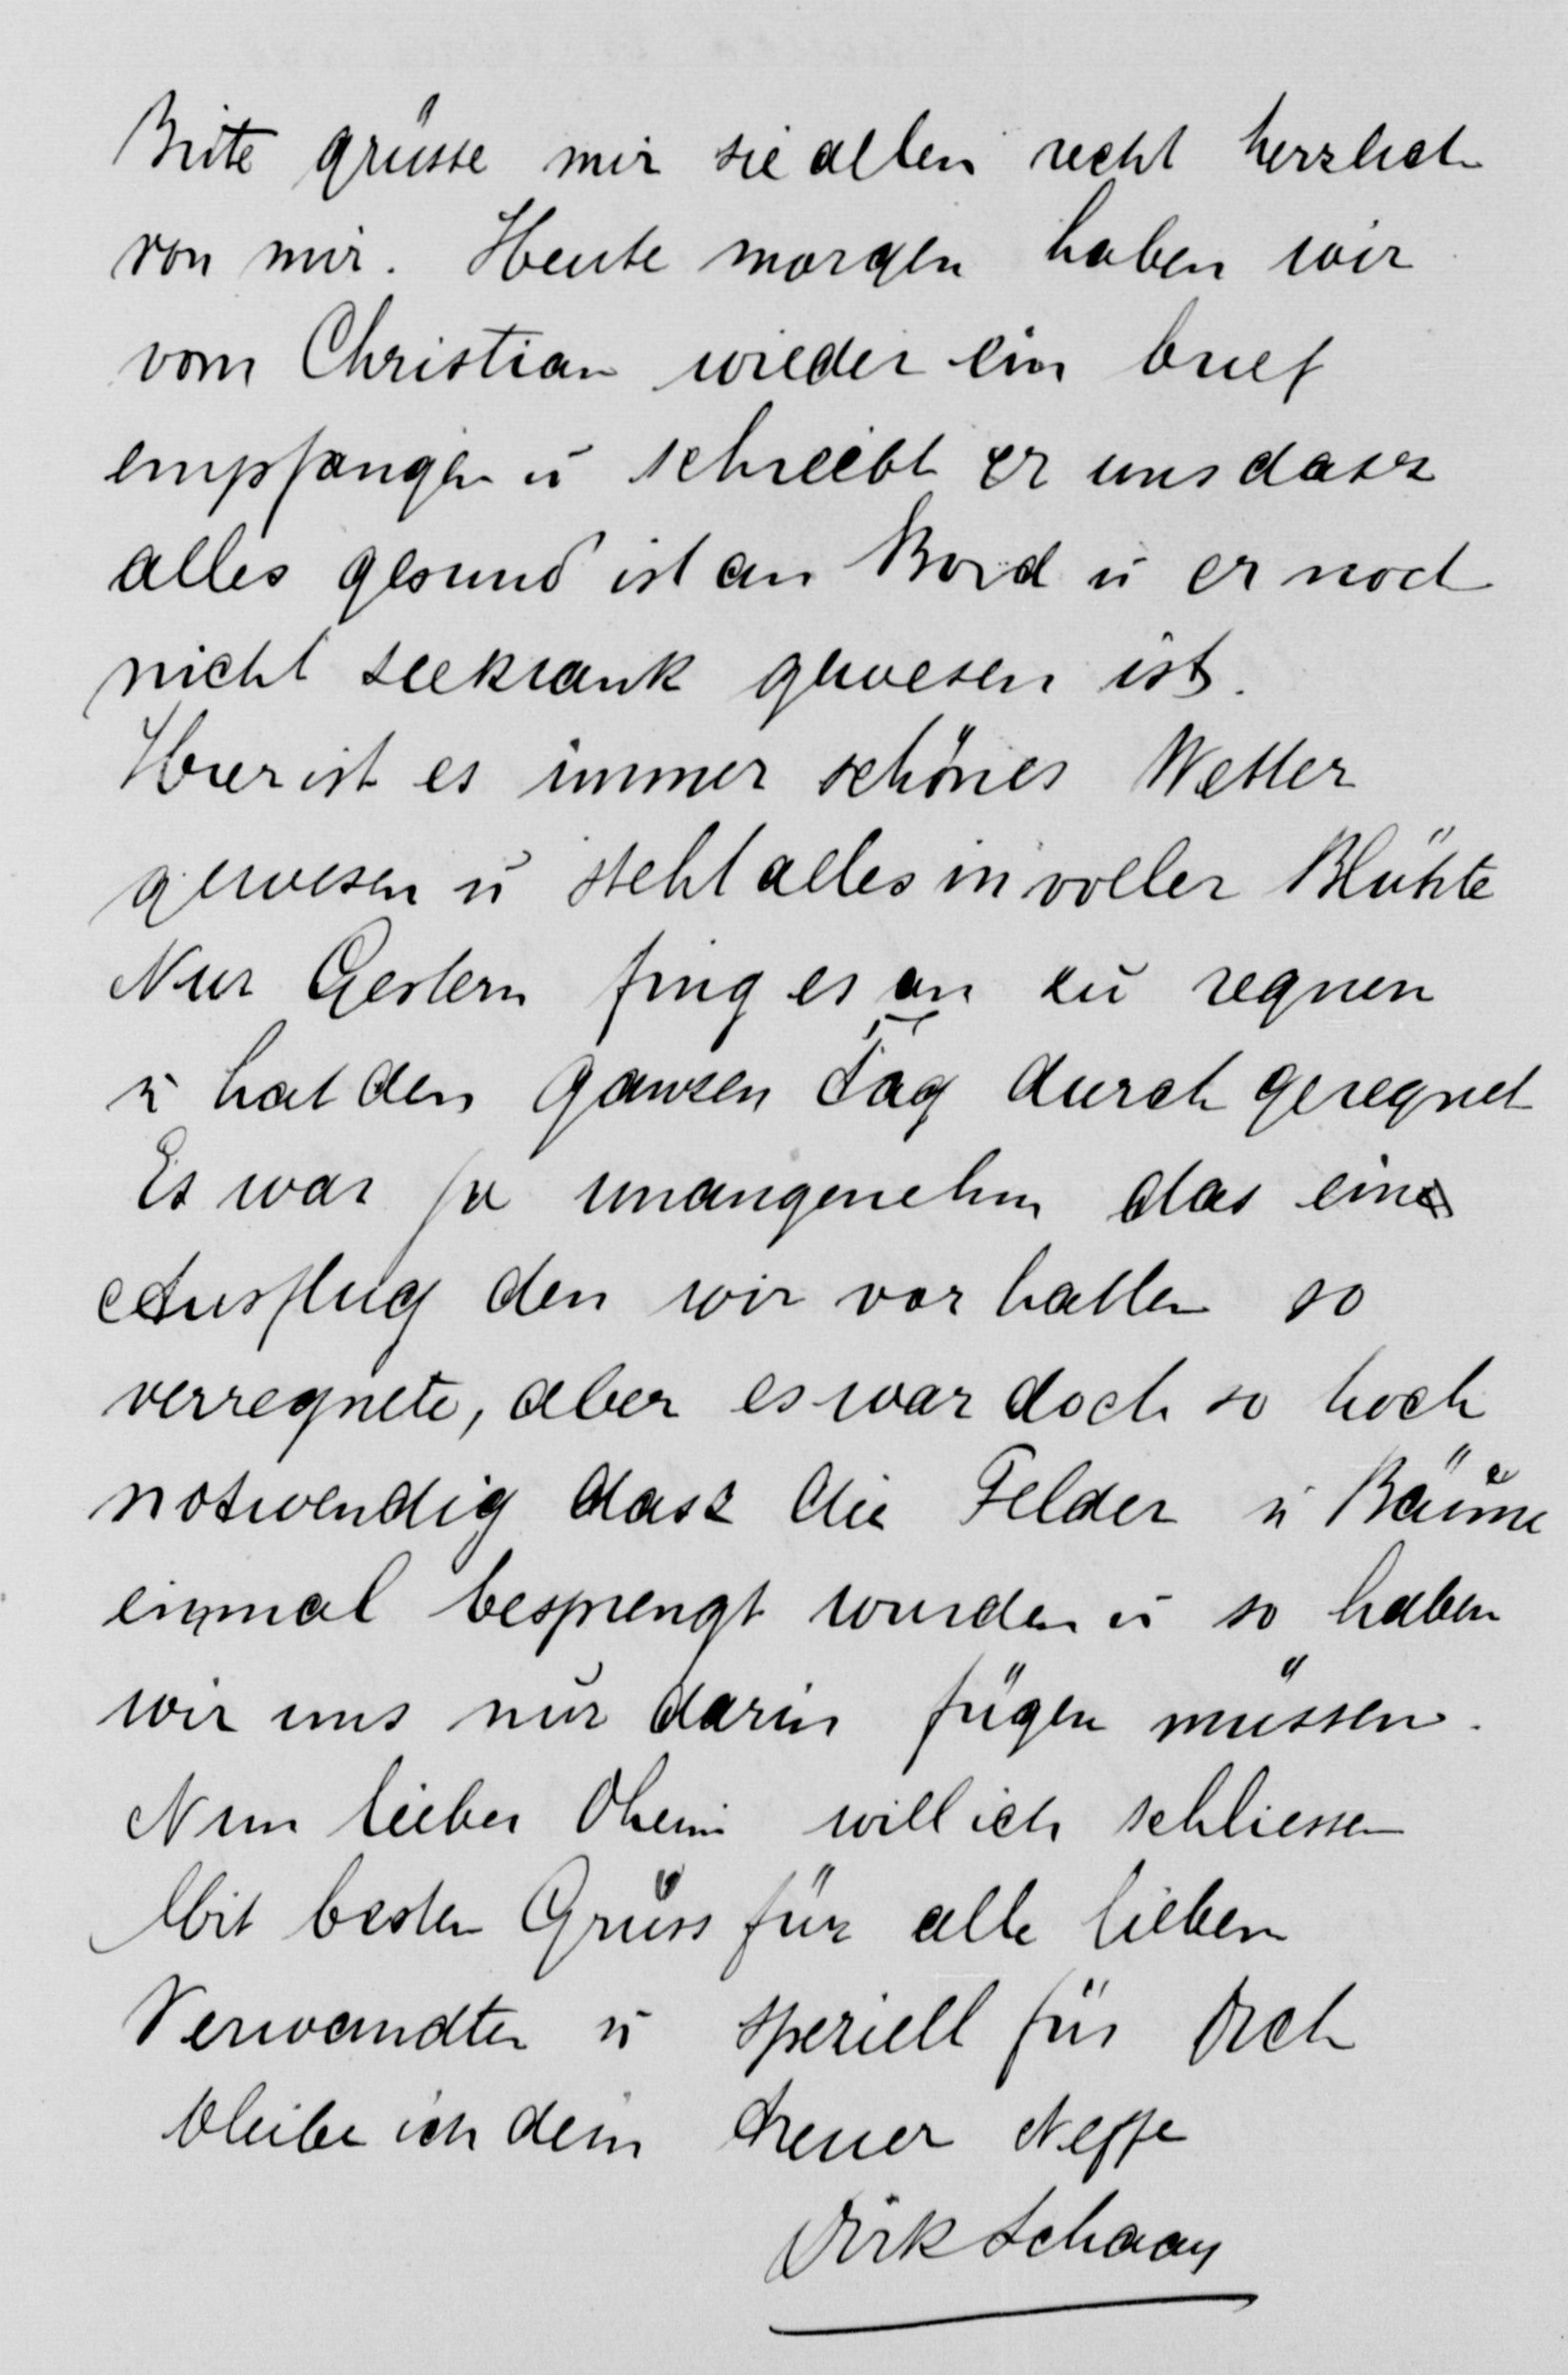 Bitte grüsse mir sie allen recht herzlich
von mir. Heute morgen haben wir
vom Christian wieder ein brief
empfangen ü schreibt er uns dasz
alles gesund ist an Bord ü er noch
nicht seekrank gewesen ist.
Hier ist es immer schönes Wetter
gewesen ü steht alles in voller Blühte
Nur Gestern fing es an zu regnen
ü hat den ganzen Tag durch geregnet
Es war ja unangenehm das ein
Ausflug den wir vor hatten so
verregnete, aber es war doch so hoch
notwendig dasz die Felder ü Bäume
einmal besprengt wurden ü so haben
wir uns nur darin fügen müssen.
Nun lieber Oheim will ich schliessen
Mit besten Grüss für alle lieben
Verwandten ü speziell für Dich
bleibe ich dein treuer Neffe
Dirk